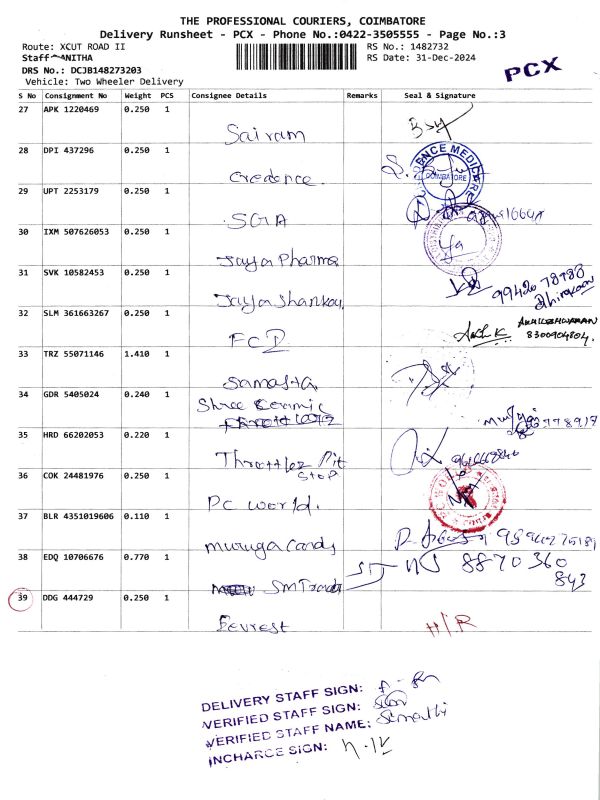 THE PROFESSIONAL COURIERS, COIMBATORE
Delivery Runsheet - PCX - Phone No.:0422-3505555 - Page No.:3
Route: XCUT ROAD II
RS No.: 1482732
Staff ANITHA
RS Date: 31-Dec-2024
DRS No.: DCJB148273203
Vehicle: Two Wheeler Delivery
PCX
S No Consignment No Weight PCS Consignee Details Remarks Seal & Signature
27 APK 1220469 0.250 1
Sairam
28 DPI 437296 0.250 1
Credence
COIMBATORE
29 UPT 2253179 0.250 1
SGA
30 IXM 507626053 0.250 1
Jaya Pharma
31 SVK 10582453 0.250 1
Jaya Shankar
99426 78988
32 SLM 361663267 0.250 1
FCI
8300904804.
33 TRZ 55071146 1.410 1
Samasta
34 GDR 5405024 0.240 1
Shree Ceramic
35 HRD 66202053 0.220 1
Throttlez Pit
Stop
36 COK 24481976 0.250 1
PC world.
37 BLR 4351019606 0.110 1
Muruga Cards
38 EDQ 10706676 0.770 1
SM Trade
8870360
843
39 DDG 444729 0.250 1
Eevrest
H/R
DELIVERY STAFF SIGN:
VERIFIED STAFF SIGN:
VERIFIED STAFF NAME: Sumathi
INCHARGE SIGN: